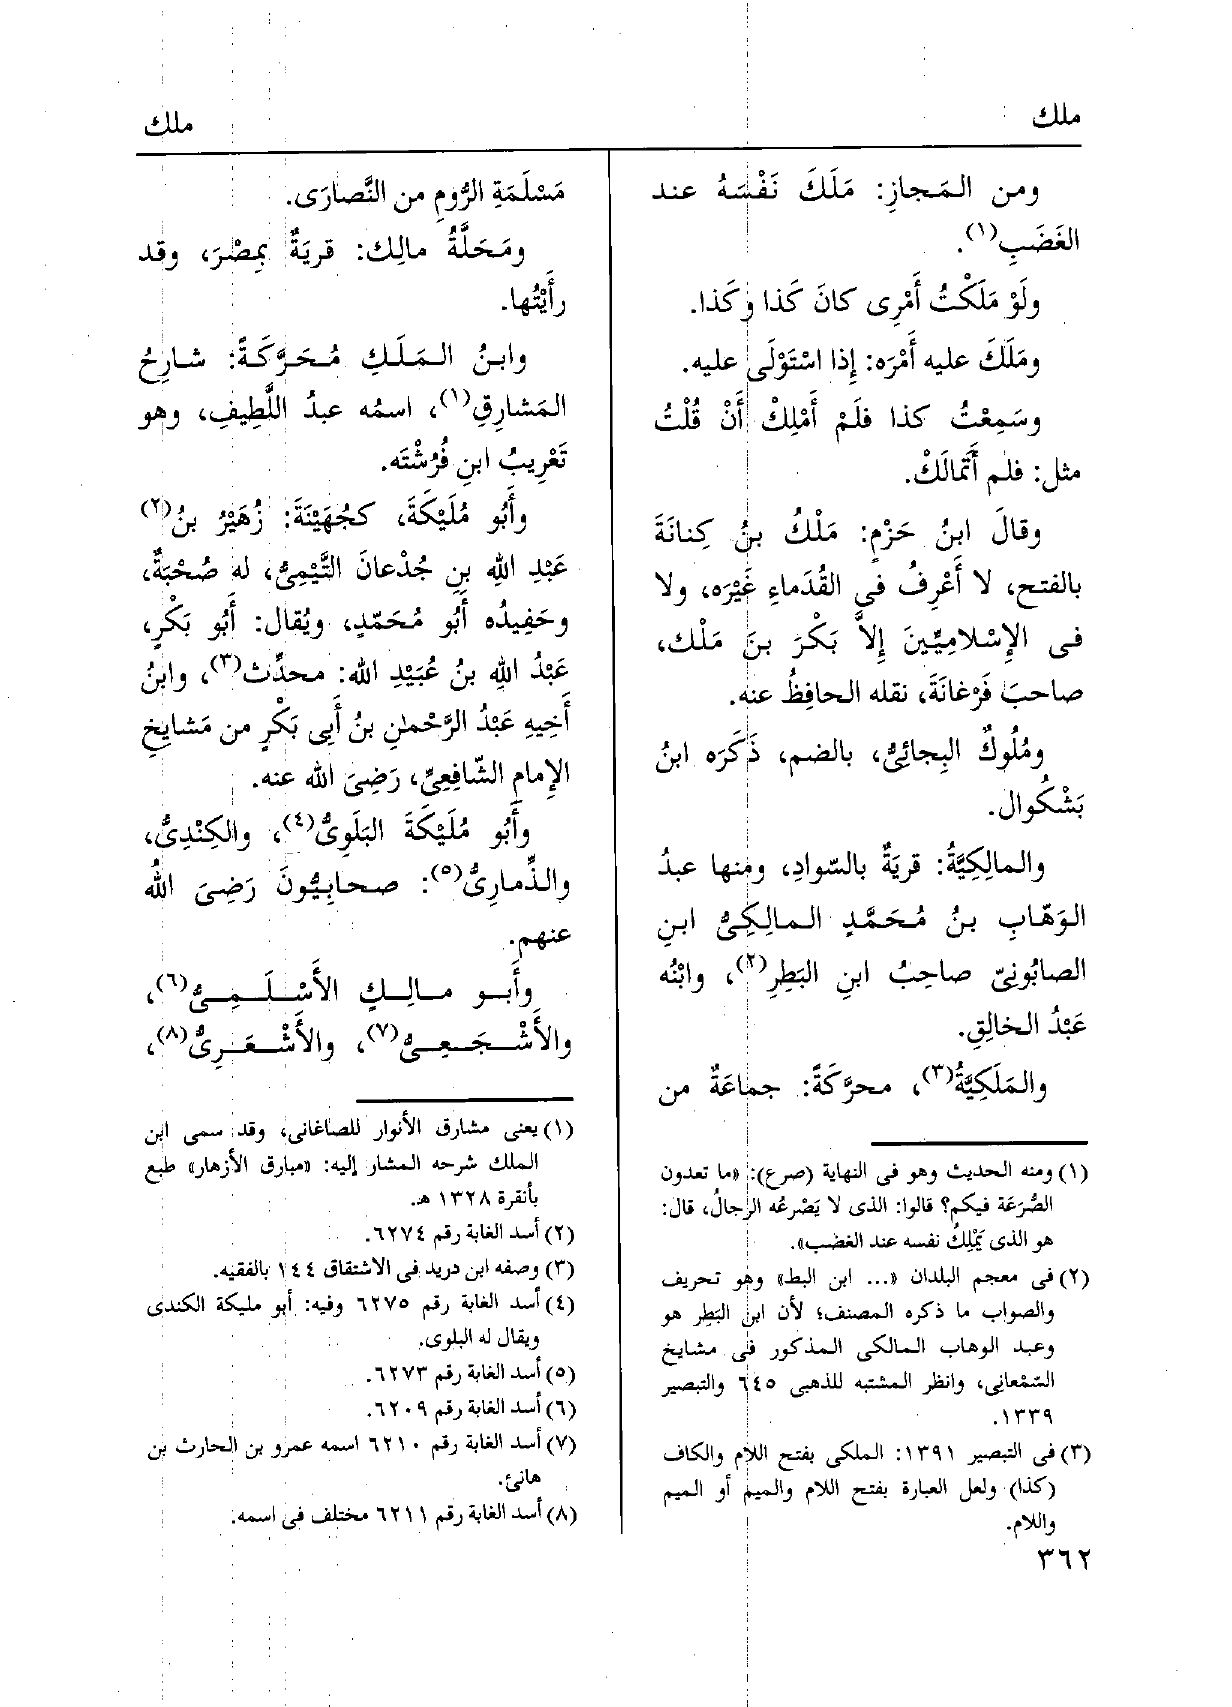 ملك
ملك
ومن المَجازِ: مَلَكَ نَفْسَهُ عند
الغَضَبِ(١).
ولَوْ مَلَكْتُ أَمْرِى كانَ كَذا وكَذا.
ومَلَكَ عليه أَمْرَه: إِذا اسْتَوْلَى عليه.
وسَمِعْتُ كذا فلَمْ أَمْلِكْ أَنْ قُلْتُ
مثل: فلم أَتَمالَكْ.
وقالَ ابنُ حَزْمٍ: مَلْكُ بنُ كِنانَةَ
بالفتح، لا أَعْرِفُ فى القُدَماءِ غَيْرَه، ولا
فى الإِسْلامِيِّينَ إِلاَّ بَكْرَ بنَ مَلْك،
صاحبَ فَرْغانَةَ، نقله الحافِظُ عنه.
ومُلُوكٌ البِجائِىُّ، بالضم، ذَكَرَه ابنُ
بَشْكُوال.
والمالِكِيَّةُ: قريَةٌ بالسّوادِ، ومنها عبدُ
الوَهّابِ بنُ مُحَمَّدٍ المالِكِىُّ ابنِ
الصابُونِىّ صاحِبُ ابنِ البَطِرِ(٢)، وابْنُه
عَبْدُ الخالِقِ.
والمَلَكِيَّةُ(٣)، محرَّكَةً: جماعَةٌ من
(١) ومنه الحديث وهو فى النهاية (صرع): «ما تعدون
الصُّرَعَة فيكم؟ قالوا: الذى لا يَصْرعُه الرجالُ، قال:
هو الذى يَمْلِكُ نفسه عند الغضب».
(٢) فى معجم البلدان «... ابن البط» وهو تحريف
والصواب ما ذكره المصنف؛ لأن ابن البَطِر هو
وعبد الوهاب المالكى المذكور فى مشايخ
السَّمْعانى، وانظر المشتبه للذهبى ٦٤٥ والتبصير
١٣٣٩.
(٣) فى التبصير ١٣٩١: الملكى بفتح اللام والكاف
(كذا) ولعل العبارة بفتح اللام والميم أو الميم
واللام.
٣٦٢
مَسْلَمَةِ الرُّومِ من النَّصارَى.
ومَحَلَّةُ مالِك: قريَةٌ بمِصْرَ، وقد
رأَيْتُها.
وابنُ المَلَكِ مُحَرَّكَةً: شارِحُ
المَشارِقِ(١)، اسمُه عبدُ اللَّطِيفِ، وهو
تَعْرِيبُ ابنِ فُرُشْتَه.
وأَبُو مُلَيْكَةَ، كجُهَيْنَةَ: زُهَيْرُ بنُ(٢)
عَبْدِ اللهِ بنِ جُدْعانَ التَّيْمِىُّ، له صُحْبَةٌ،
وحَفِيدُه أَبُو مُحَمّدٍ، ويُقال: أَبُو بَكْرٍ،
عَبْدُ اللهِ بنُ عُبَيْدِ الله: محدِّث(٣)، وابنُ
أَخِيهِ عَبْدُ الرَّحْمٰنِ بنُ أَبِى بَكْرٍ من مَشايِخِ
الإِمامِ الشّافِعِىِّ، رَضِىَ الله عنه.
وأَبُو مُلَيْكَةَ البَلَوِىُّ(٤)، والكِنْدِىُّ،
والذِّمارِىُّ(٥): صحابِيُّونَ رَضِىَ اللهُ
عنهم.
وأَبو مالِكٍ الأَسْلَمِىُّ(٦)،
والأَشْجَعِىُّ(٧)، والأَشْعَرِىُّ(٨)،
(١) يعنى مشارق الأنوار للصاغانى، وقد سمى ابن
الملك شرحه المشار إليه: «مبارق الأزهار» طبع
بأنقرة ١٣٢٨ هـ.
(٢) أسد الغابة رقم ٦٢٧٤.
(٣) وصفه ابن دريد فى الاشتقاق ١٤٤ بالفقيه.
(٤) أسد الغابة رقم ٦٢٧٥ وفيه: أبو مليكة الكندى
ويقال له البلوى.
(٥) أسد الغابة رقم ٦٢٧٣.
(٦) أسد الغابة رقم ٦٢٠٩.
(٧) أسد الغابة رقم ٦٢١٠ اسمه عمرو بن الحارث بن
هانئ.
(٨) أسد الغابة رقم ٦٢١١ مختلف فى اسمه.